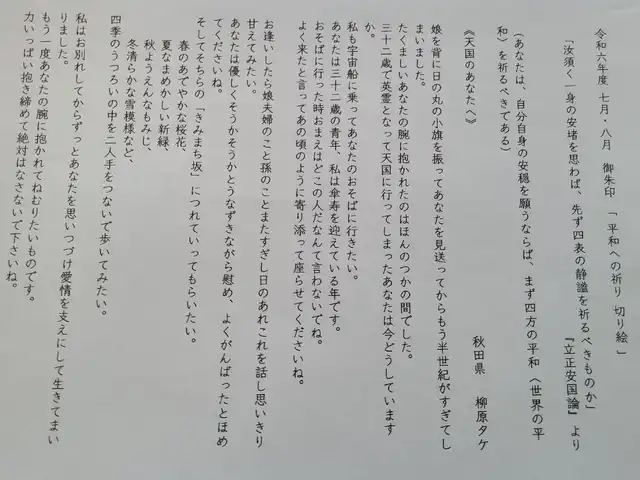 令和六年度 七月・八月 御朱印 「平和への祈り 切り絵」
「汝須く一身の安堵を思わば、先ず四表の静謐を祈るべきものか」
『立正安国論』より
(あなたは、自分自身の安穏を願うならば、まず四方の平和(世界の平
和)を祈るべきである)
《天国のあなたへ》
秋田県 柳原タケ
娘を背に日の丸の小旗を振ってあなたを見送ってからもう半世紀がすぎてし
まいました。
たくましいあなたの腕に抱かれたのはほんのつかの間でした。
三十二歳で英霊となって天国に行ってしまったあなたは今どうしています
か。
私も宇宙船に乗ってあなたのおそばに行きたい。
あなたは三十二歳の青年、私は傘寿を迎えている年です。
おそばに行った時おまえはどこの人だなんて言わないでね。
よく来たと言ってあの頃のように寄り添って座らせてくださいね。
お逢いしたら娘夫婦のこと孫のことまたすぎし日のあれこれを話し思いきり
甘えてみたい。
あなたは優しくそうかそうかとうなずきながら慰め、よくがんばったとほめ
てくださいね。
そしてそちらの「きみまち坂」につれていってもらいたい。
春のあでやかな桜花、
夏なまめかしい新緑、
秋ようえんなもみじ、
冬清らかな雪模様など、
四季のうつろいの中を二人手をつないで歩いてみたい。
私はお別れしてからずっとあなたを思いつづけ愛情を支えにして生きてまい
りました。
もう一度あなたの腕に抱かれてねむりたいものです。
力いっぱい抱き締めて絶対はなさないで下さいね。